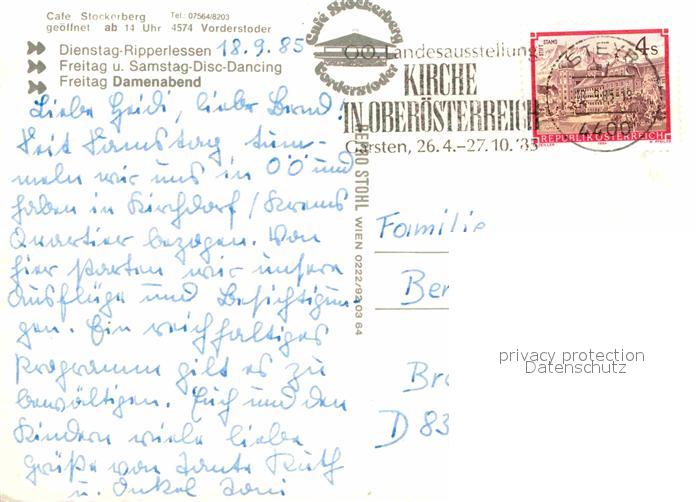 Cafe Stockerberg Tel.: 07564/8203
geöffnet ab 14 Uhr 4574 Vorderstoder
Dienstag-Ripperlessen 18.9.85
Freitag u. Samstag-Disc-Dancing
Freitag Damenabend
Cafe Stockerberg
Vorderstoder
Liebe Heidi, lieber Bernd!
Seit Samstag tum-
meln wir uns in OÖ und
haben in Kirchdorf / Krems
Quartier bezogen. Von
hier starten wir unsere
Ausflüge und Besichtigun-
gen. Ein reichhaltiges
Programm gilt es zu
bewältigen. Euch und den
Kindern viele liebe
Grüße von Tante Ruth
u. Onkel Toni
OÖ. Landesausstellung
KIRCHE
IN OBERÖSTERREICH
Garsten, 26.4.–27.10.'85
STIFT STAMS
4 S
REPUBLIK ÖSTERREICH
STEYR
STOHL WIEN 0222/92 03 64
Familie
Ber
Br
D 83
privacy protection
Datenschutz